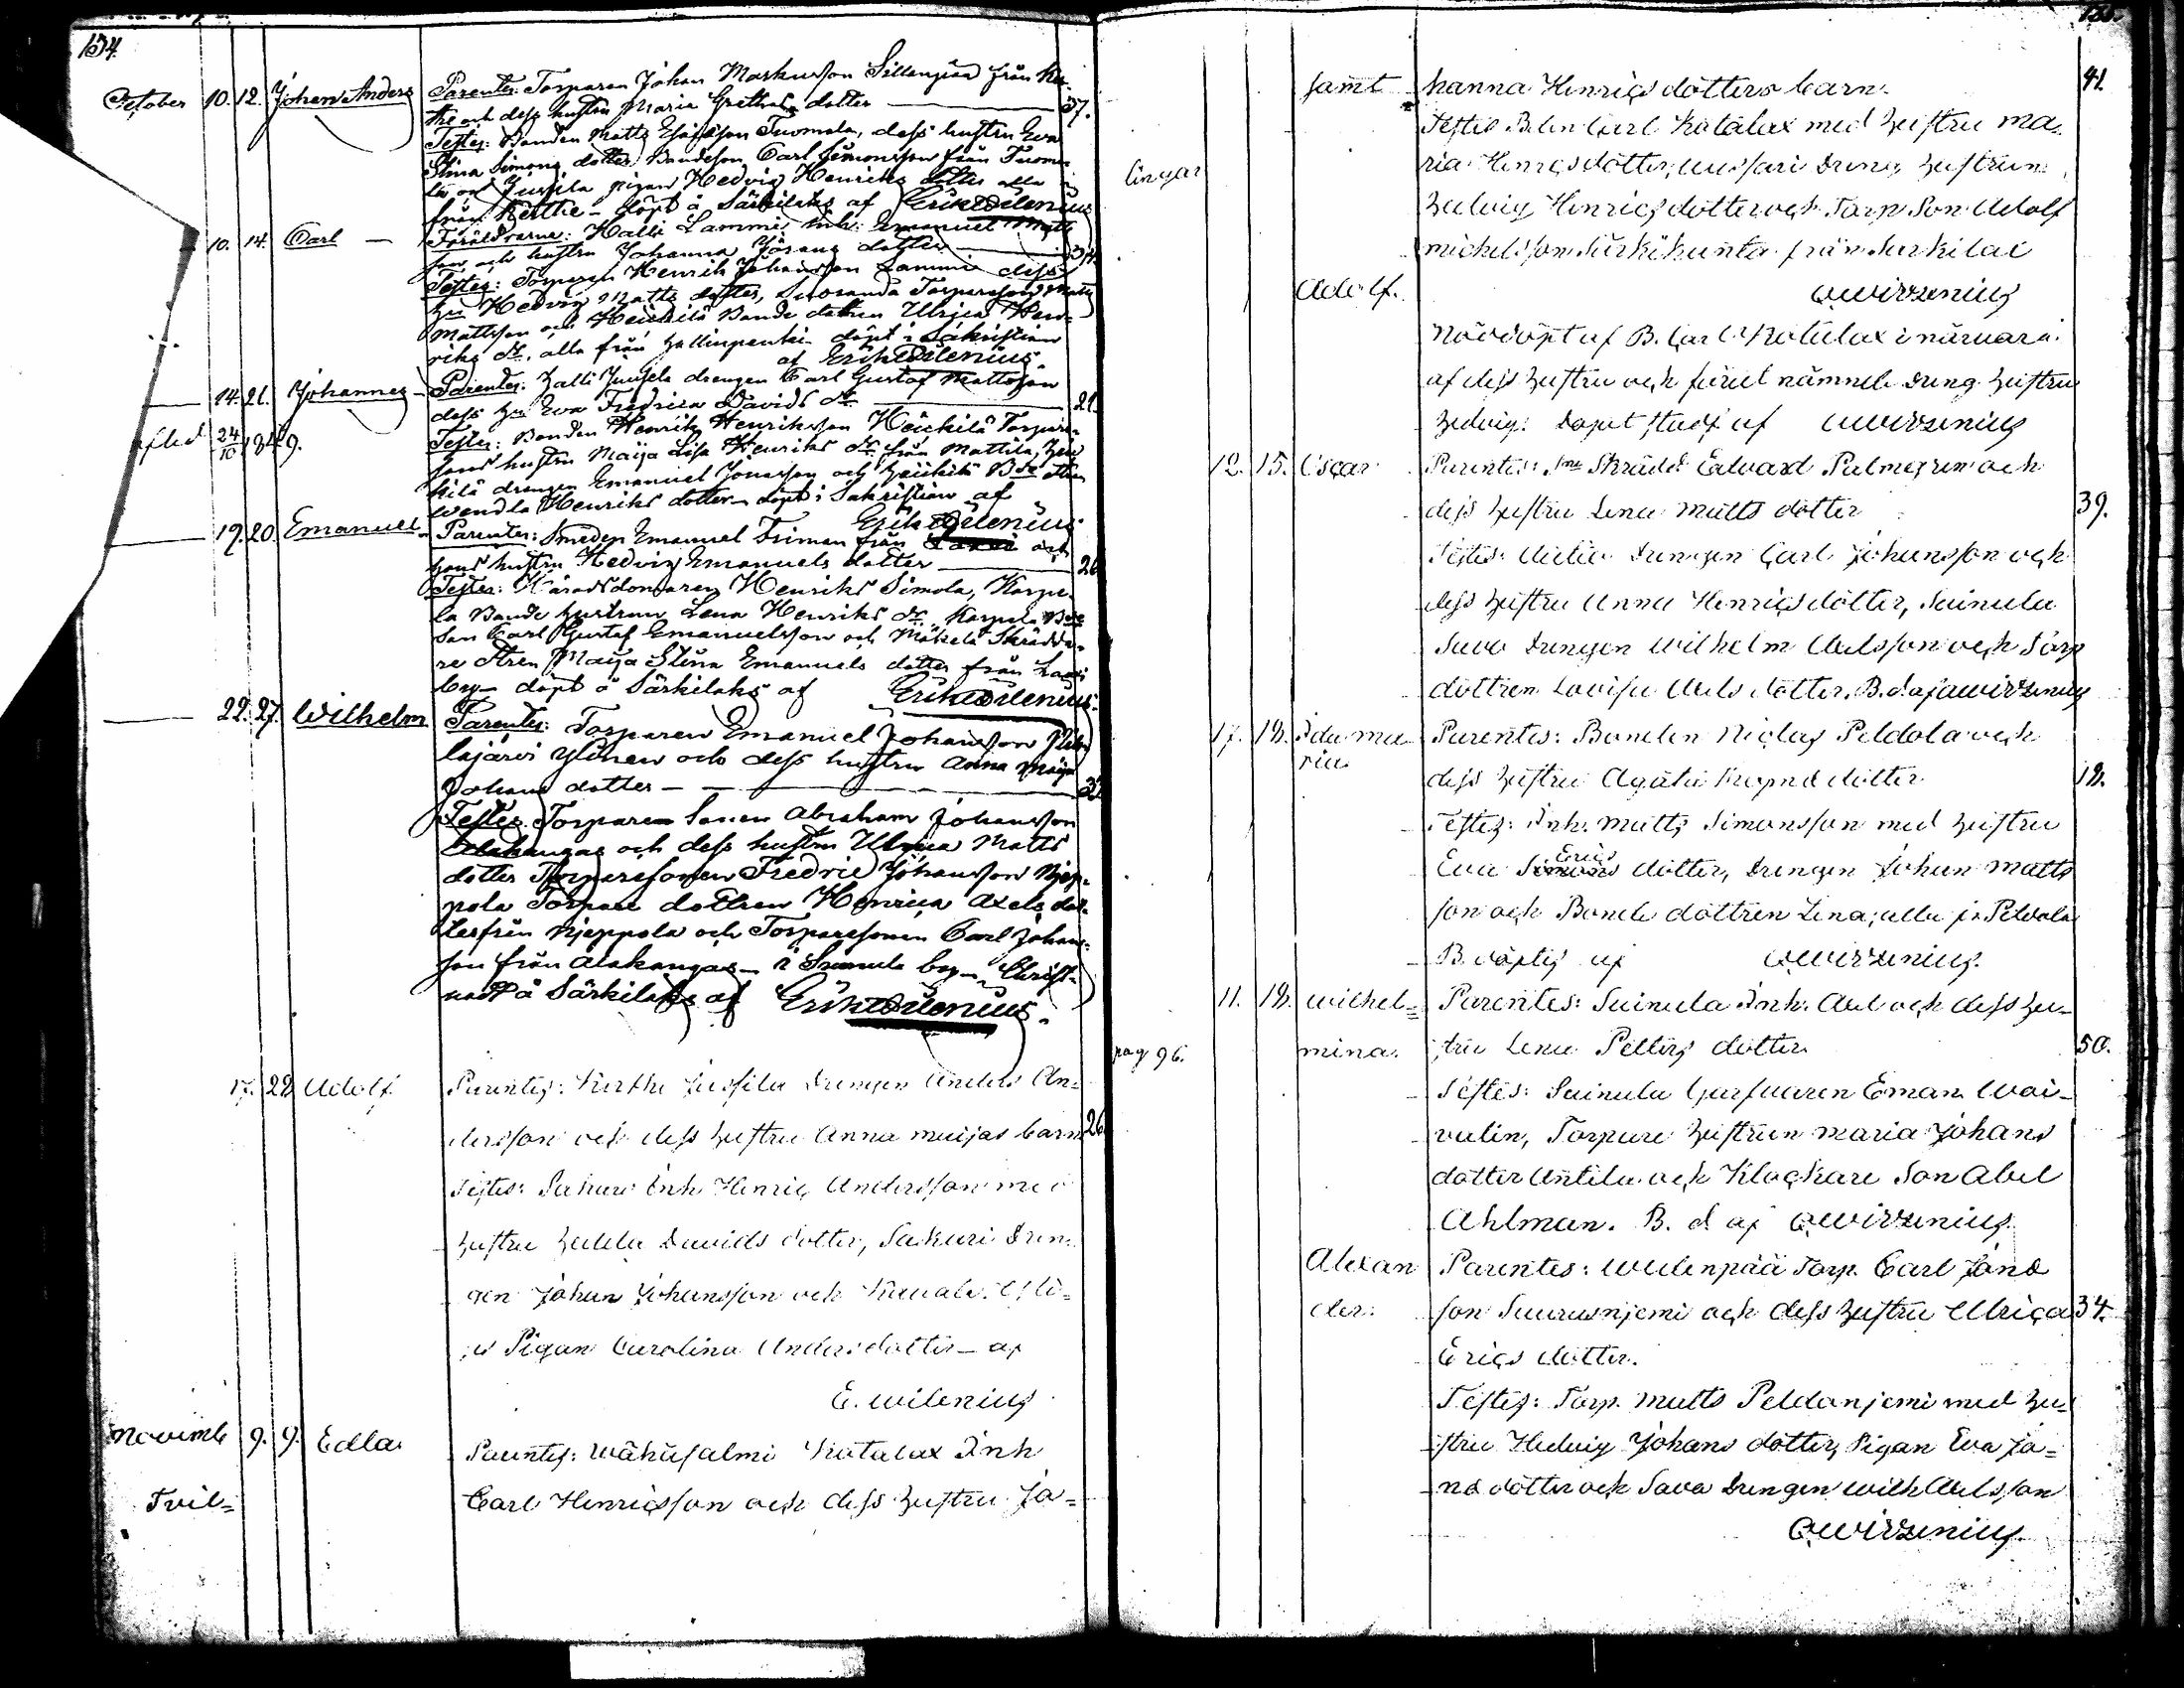 134.
October 10. 12. Johan Anders Parentes: Torparen Johan Markusson Sillanpää från Ker-
the och dess hustru Maria Grethas dotter 37.
Testes: Bonden Matts Esaiasson Tuomola, dess hustru Eva
Stina Simons dotter, Bondeson Carl Simonsson från Tuomo-
la och Jussila pigan Hedvig Henriks dotter alla
från Kerthe – döpt å Särkilaks af Erik Wilenius
10. 14. Carl – Föräldrarne: Halli Lammi inh: Emanuel Matts
son och hustru Johanna Jösang dotter
Testes: Torparen Henrik Johansson Lammi dess
hu Hedvig Matts dotter, Suoranda Torpareson Matts
Mattsson och Heickilä Bonde dottren Ulrica Hen-
riks dr, alla från Hallinpenki – döpt i Sakristian
af Erik Wilenius
14. 21. Johannes – Parentes: Halli Jussila drengen Carl Gustaf Mattsson
dess hu Eva Fredrica Davids dr 21.
24/10 1849. Testes: Bonden Henrik Henriksson Heickilä Torpare
sons hustru Maija Lisa Henriks dr från Mattila, Hei-
kilä drengen Emanuel Jönasson och Heickilä Bde dtren
Wendla Henriks dotter – döpt i Sakristian af
Erik Wilenius
19. 20. Emanuel – Parentes: Smeden Emanuel Friman från och
hans hustru Hedvig Emanuels dotter 26
Testes: Häradsdomaren Henriks Simola, Karpe-
la Bonde hustrun Lena Henriks dr, Karpela Bde
son Carl Gustaf Emanuelsson och Mäkelä Skrädda-
re dtren Maija Stina Emanuels dotter från
by – döpt å Särkilaks af Erik Wilenius.
22. 27. Wilhelm Parentes: Torparen Emanuel Johansson
lajärvi Ylönen och dess hustru Anna Maija
Johans dotter –
Testes: Torpare Sonen Abraham Johansson
Alakangas och dess hustru Ulrica Matts
dotter Torparesonen Fredric Johansson Njep-
pola Torpare dottren Henrica Axels dot-
ter från Njeppola och Torparesonen Carl Johans-
son från Alakangas – i Sainula by – Christ-
nadt å Särkilaks af Erik Wilenius.
17. 28 Adolf Parentes: Kerthe Jussila Drengen Anders An-
dersson och dess hustru Anna Maijas barn 26
Testes: Sakari Inh. Henric Andersson med
hustru Hedda Davids dotter, Sakari Dren-
gen Johan Johansson och
Pigan Carolina Anders dotter – af
E. Wilenius
Novemb 9. 9. Edla Parentes: Wähäsalmi Katalax Inh
Tvil= Carl Henricsson och dess hustru Jo=
samt hanna Henrics dotters barn. 41.
Testes Bden Carl Katalax med hustru Ma-
lingar ria Henricsdotter, Uussari Dreng hustrun
Hedvig Henrics dotter och Torp. Son Adolf
Michelsson Särkikunta från Särkilax
Adolf. QWirzenius
Nöddöpt af B. Carl Katalax i närvara
af dess hustru och förut nämnde Dreng hustru
Hedvig. Dopet stadf. af QWirzenius
12. 15. Oscar Parentes: Sme Skrädd. Edvard Palmgren och
dess hustru Lena Matts dotter 39.
Testes: Drengen Carl Johansson och
dess hustru Anna Henrics dotter, Sainula
Savo Drengen Wilhelm Abelsson och Torp
dottren Lovisa Abels dotter. B. d. af QWirzenius
17. 18. Ida Ma- Parentes: Bonden Niclas Peldola och
ria dess hustru Agata dotter 18.
Testes: Inh. Matts Simonsson med hustru
Erics
Eva Simons dotter, Drengen Johan Matts
son och Bonde dottren Lena, alla fr. Peldola
B. döptes af QWirzenius.
11. 18. Wilhel= Parentes: Sainula Inh. Abel och dess hu-
pag 96. mina. stru Lena Petters dotter 50.
Testes: Sainula Garfvaren Eman. Wai-
valin, Torpare hustrun Maria Johans
dotter Antila och Klockare Son Abel
Ahlman. B. d. af QWirzenius.
Alexan Parentes: Wälenpää Torp. Carl Jöns
der. son Suurusnjemi och dess hustru Ulrica 34.
Erics dotter.
Testes: Torp. Matts Peldanjemi med hu-
stru Hedvig Johans dotter, Pigan Eva Jo=
ns dotter och Sava Drengen Wilh. Abelsson
QWirzenius